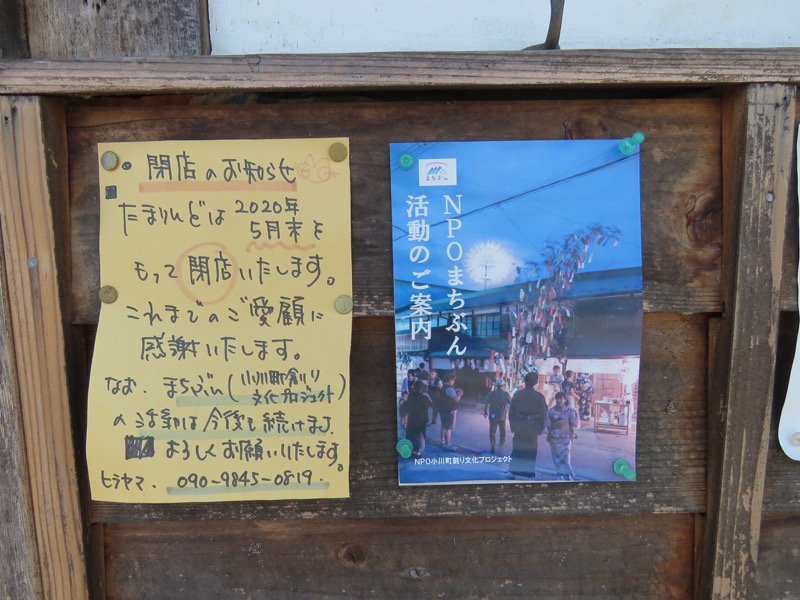 閉店のお知らせ
たまりんどは2020年
5月末を
もって閉店いたします。
これまでのご愛顧に
感謝いたします。
なお、まちぶん(小川町創り
文化プロジェクト)
の活動は今後も続けます。
よろしくお願いいたします。
ヒラヤマ. 090-9845-0819.
まちぶん
NPOまちぶん
活動のご案内
NPO小川町創り文化プロジェクト